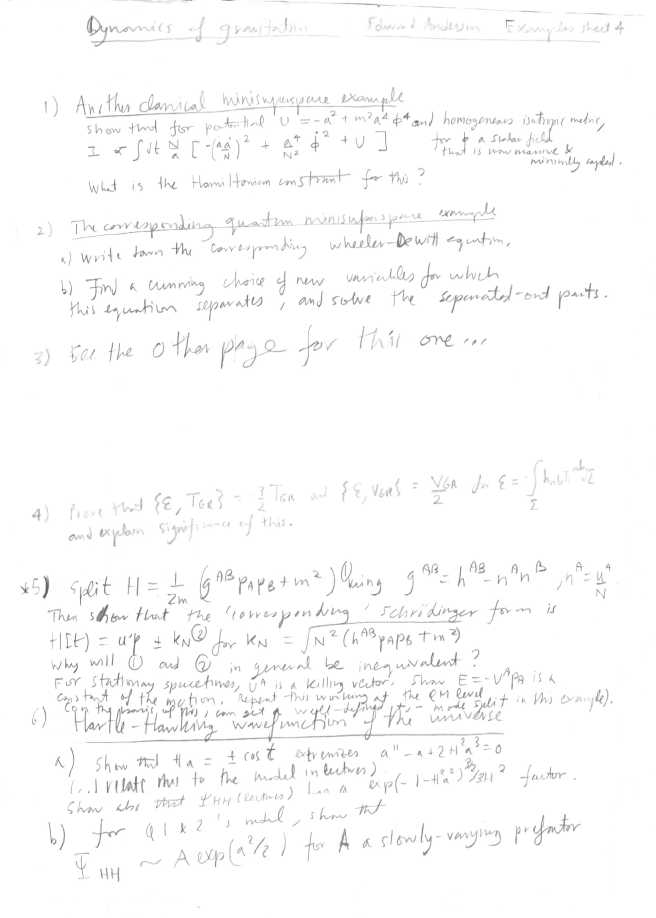 Dynamics of gravitation Edward Anderson Examples sheet 4
1) Another classical minisuperspace example
Show that for potential U = -a² + m²a⁴ϕ⁴ and homogeneous isotropic metric,
I ∝ ∫dt N/a [ -(aȧ/N)² + a⁴/N² ϕ̇² + U ] for ϕ a scalar field
that is now massive &
minimally coupled.
What is the Hamiltonian constraint for this?
2) The corresponding quantum minisuperspace example
a) Write down the corresponding Wheeler-DeWitt equation.
b) Find a cunning choice of new variables for which
this equation separates, and solve the separated-out parts.
3) See the other page for this one...
4) Prove that {Ɛ, T_GR} = 3/2 T_GR and {Ɛ, V_GR} = V_GR/2 for Ɛ = ∫_Σ
and explain significance of this.
*5) Split H = 1/2m (g^AB p_A p_B + m²) ① using g^AB = h^AB - n^A n^B, n^A = u^A/N
Then show that the corresponding Schrödinger form is
H(t) = u^A p ± k_N ② for k_N = √N²(h^AB p_A p_B + m²)
Why will ① and ② in general be inequivalent?
For stationary spacetimes, U^A is a Killing vector. Show E = -U^A p_A is a
constant of the motion. Repeat this working at the QM level
(On the basis of this, can get a well-defined +, - mode split in this example).
6) Hartle-Hawking wavefunction of the universe
a) Show that Ha = ± cos t extremizes a" - a + 2H²a³ = 0
(...) relate this to the model in lectures)
Show also that Ψ_HH (lectures) has a exp(-1-H²a²)^3/2/3H² factor.
b) for Q1 & 2's model, show that
Ψ_HH ~ A exp(a²/2) for A a slowly-varying prefactor